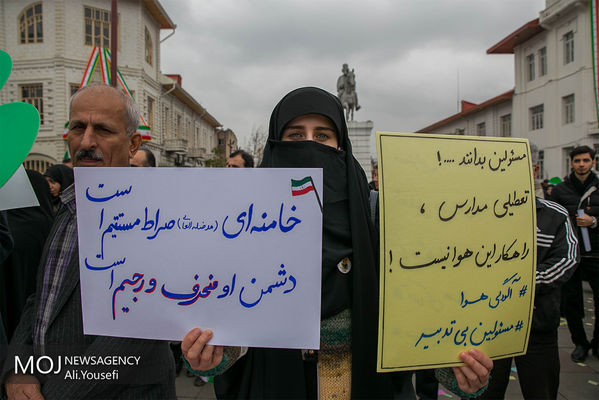 خامنه ای (مدظله العالی) صراط مستقیم است
دشمن او منحرف و رجیم است
مسئولین بدانند ....!
تعطیلی مدارس ،
راهکار این هوا نیست !
# آلودگی هوا
# مسئولین بی تدبیر
MOJ NEWSAGENCY
Ali.Yousefi